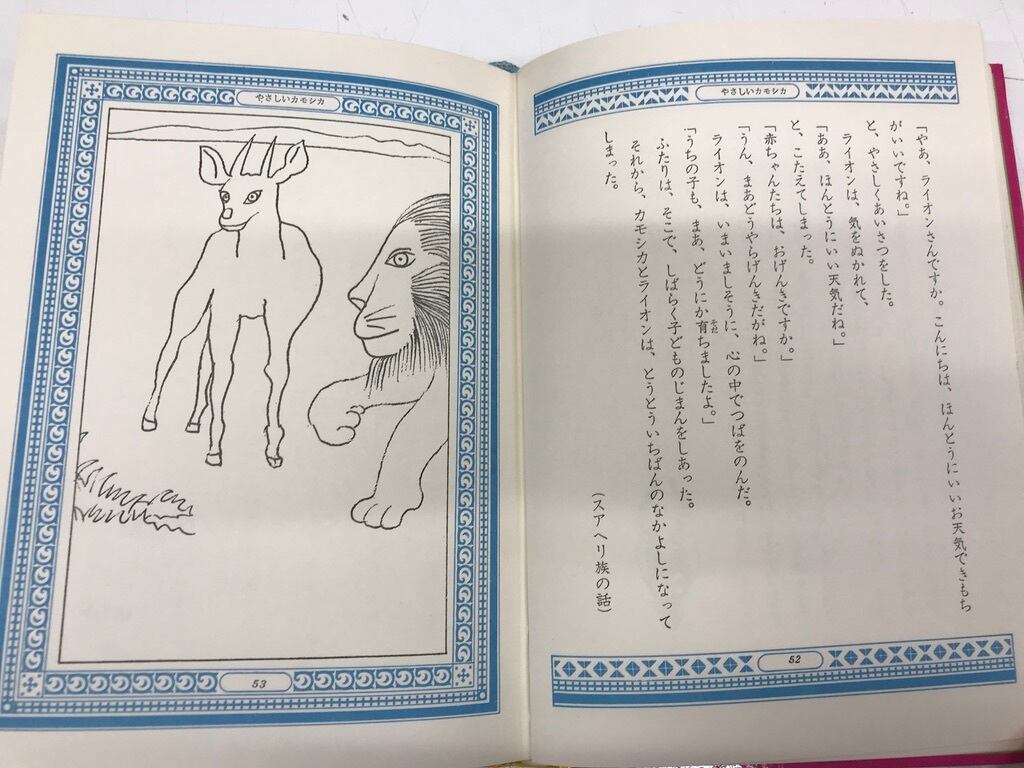 やさしいカモシカ
「やあ、ライオンさんですか。こんにちは、ほんとうにいいお天気できもち
がいいですね。」
と、やさしくあいさつをした。
ライオンは、気をぬかれて、
「ああ、ほんとうにいい天気だね。」
と、こたえてしまった。
「赤ちゃんたちは、おげんきですか。」
「うん、まあどうやらげんきだがね。」
ライオンは、いまいましそうに、心の中でつばをのんだ。
「うちの子も、まあ、どうにか育ちましたよ。」
そだ
ふたりは、そこで、しばらく子どものじまんをしあった。
それから、カモシカとライオンは、とうとういちばんのなかよしになって
しまった。
(スアヘリ族の話)
52
やさしいカモシカ
53